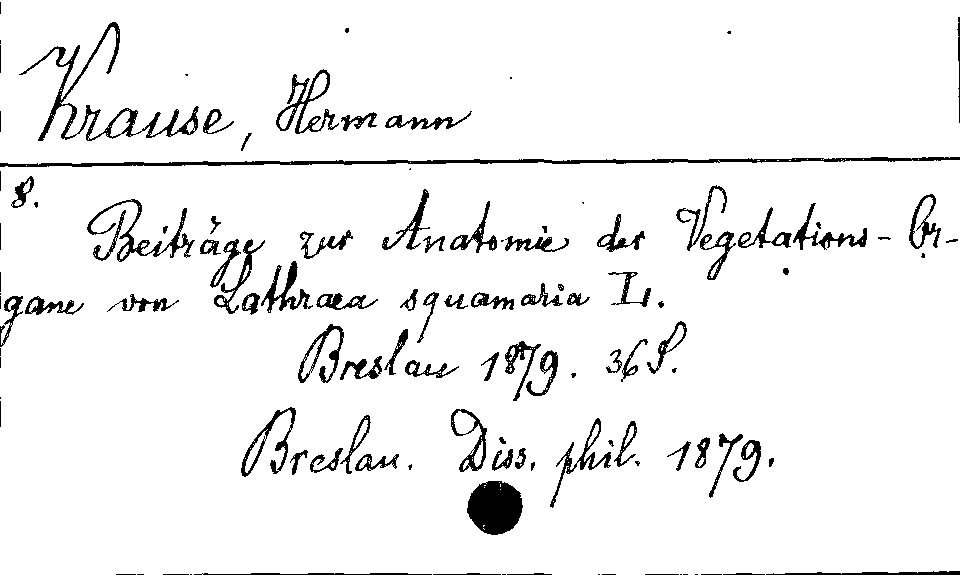 Krause, Hermann
8.
Beiträge zur Anatomie der Vegetations-Or-
gane von Lathraea squamaria L.
Breslau 1879. 36 S.
Breslau. Diss. phil. 1879.